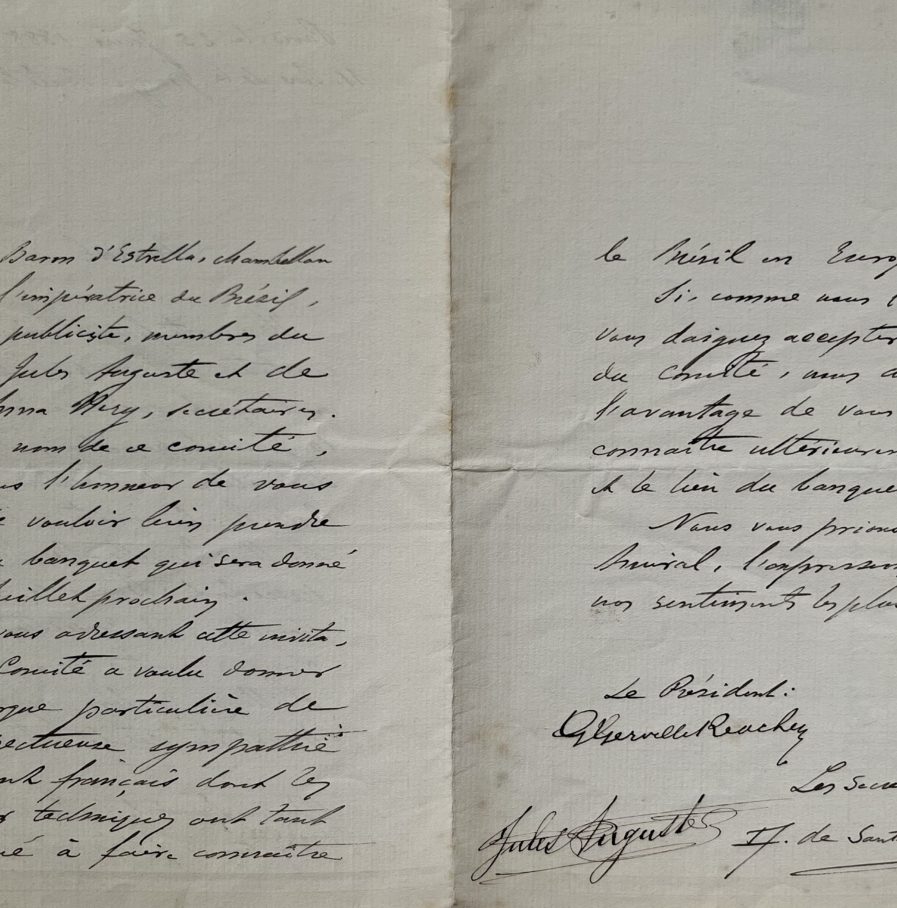 Baron d'Estrella, chambellan
l'impératrice du Brésil,
publiciste, membres du
Jules Auguste et de
Anna Nery, secrétaires.
nom de ce comité,
l'honneur de vous
vouloir bien prendre
banquet qui sera donné
Juillet prochain.
vous adressant cette invita,
Comité a voulu donner
particulière de
sympathie
français dont les
techniques ont tant
à faire connaître
le Brésil en Europ
Si, comme nous l
vous daignez accepter
du comité, nous a
l'avantage de vous
connaître ultérieurem
et le lieu du banque
Nous vous prions
Amiral, l'expression
nos sentiments les plus
Le Président:
Gerville Reache
Les Secré
Jules Auguste
F. de Sant